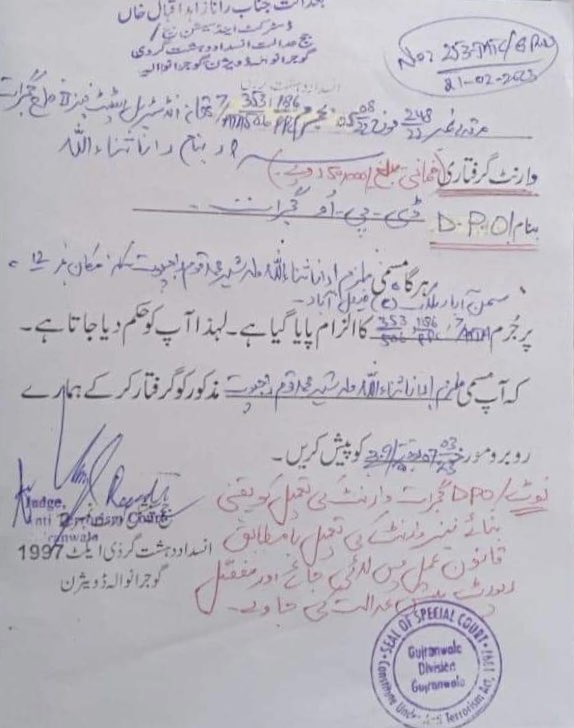 بعدالت جناب رانا زاہد اقبال خاں
ڈسٹرکٹ اینڈ سیشن جج /
جج عدالت انسداد دہشت گردی
گوجرانوالہ ڈویژن گوجرانوالہ
No: 253-ATC/GRW
21-02-2023
مقدمہ نمبر 248/22 مورخہ 05 08/22 بجرم 353 186 506 PPC 7/ATA تھانہ انڈسٹریل اسٹیٹ گجرات
بنام رانا ثناء اللہ
وارنٹ گرفتاری (ضمانتی مبلغ /50,000 روپے)
بنام / D.P.O ڈی۔پی۔او گجرات
ہرگاہ مسمی ملزم رانا ثناء اللہ ولد شیر محمد قوم راجپوت سکنہ مکان نمبر 12
سمن آباد فیصل آباد۔
پر جُرم 353 186 506 PPC 7/ATA کا الزام پایا گیا ہے۔ لہذا آپ کو حکم دیا جاتا ہے۔
کہ آپ مسمی ملزم رانا ثناء اللہ ولد شیر محمد قوم راجپوت مذکور کو گرفتار کر کے ہمارے
روبرو مورخہ 07 03/23 کو پیش کریں۔
نوٹ / DPO گجرات وارنٹ کی تعمیل کو یقینی
بنائے نیز وارنٹ کی تعمیل بامطابق
قانون عمل میں لائی جائے اور مفصل
رپورٹ عدالت کی جاوے۔
Judge,
Anti Terrorism Court
Gujranwala
انسداد دہشت گردی ایکٹ 1997
گوجرانوالہ ڈویژن
SEAL OF SPECIAL COURT
Gujranwala
Division
Gujranwala
Constitute Under Anti Terrorism Act, 1997